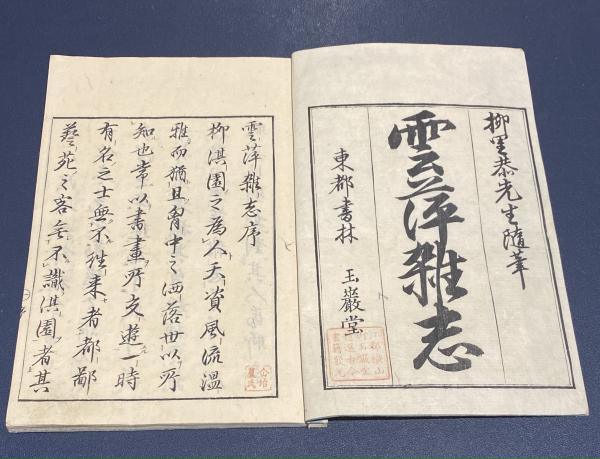 柳里恭先生隨筆
雲萍雜志
東都書林 玉巖堂
雲萍雜志序
柳淇園之為人天資風流溫
雅而猶且胷中之洒落世以所
知也常以書畫所交遊一時
有名之士無不往来者都鄙
藝苑之客無不識淇園者其